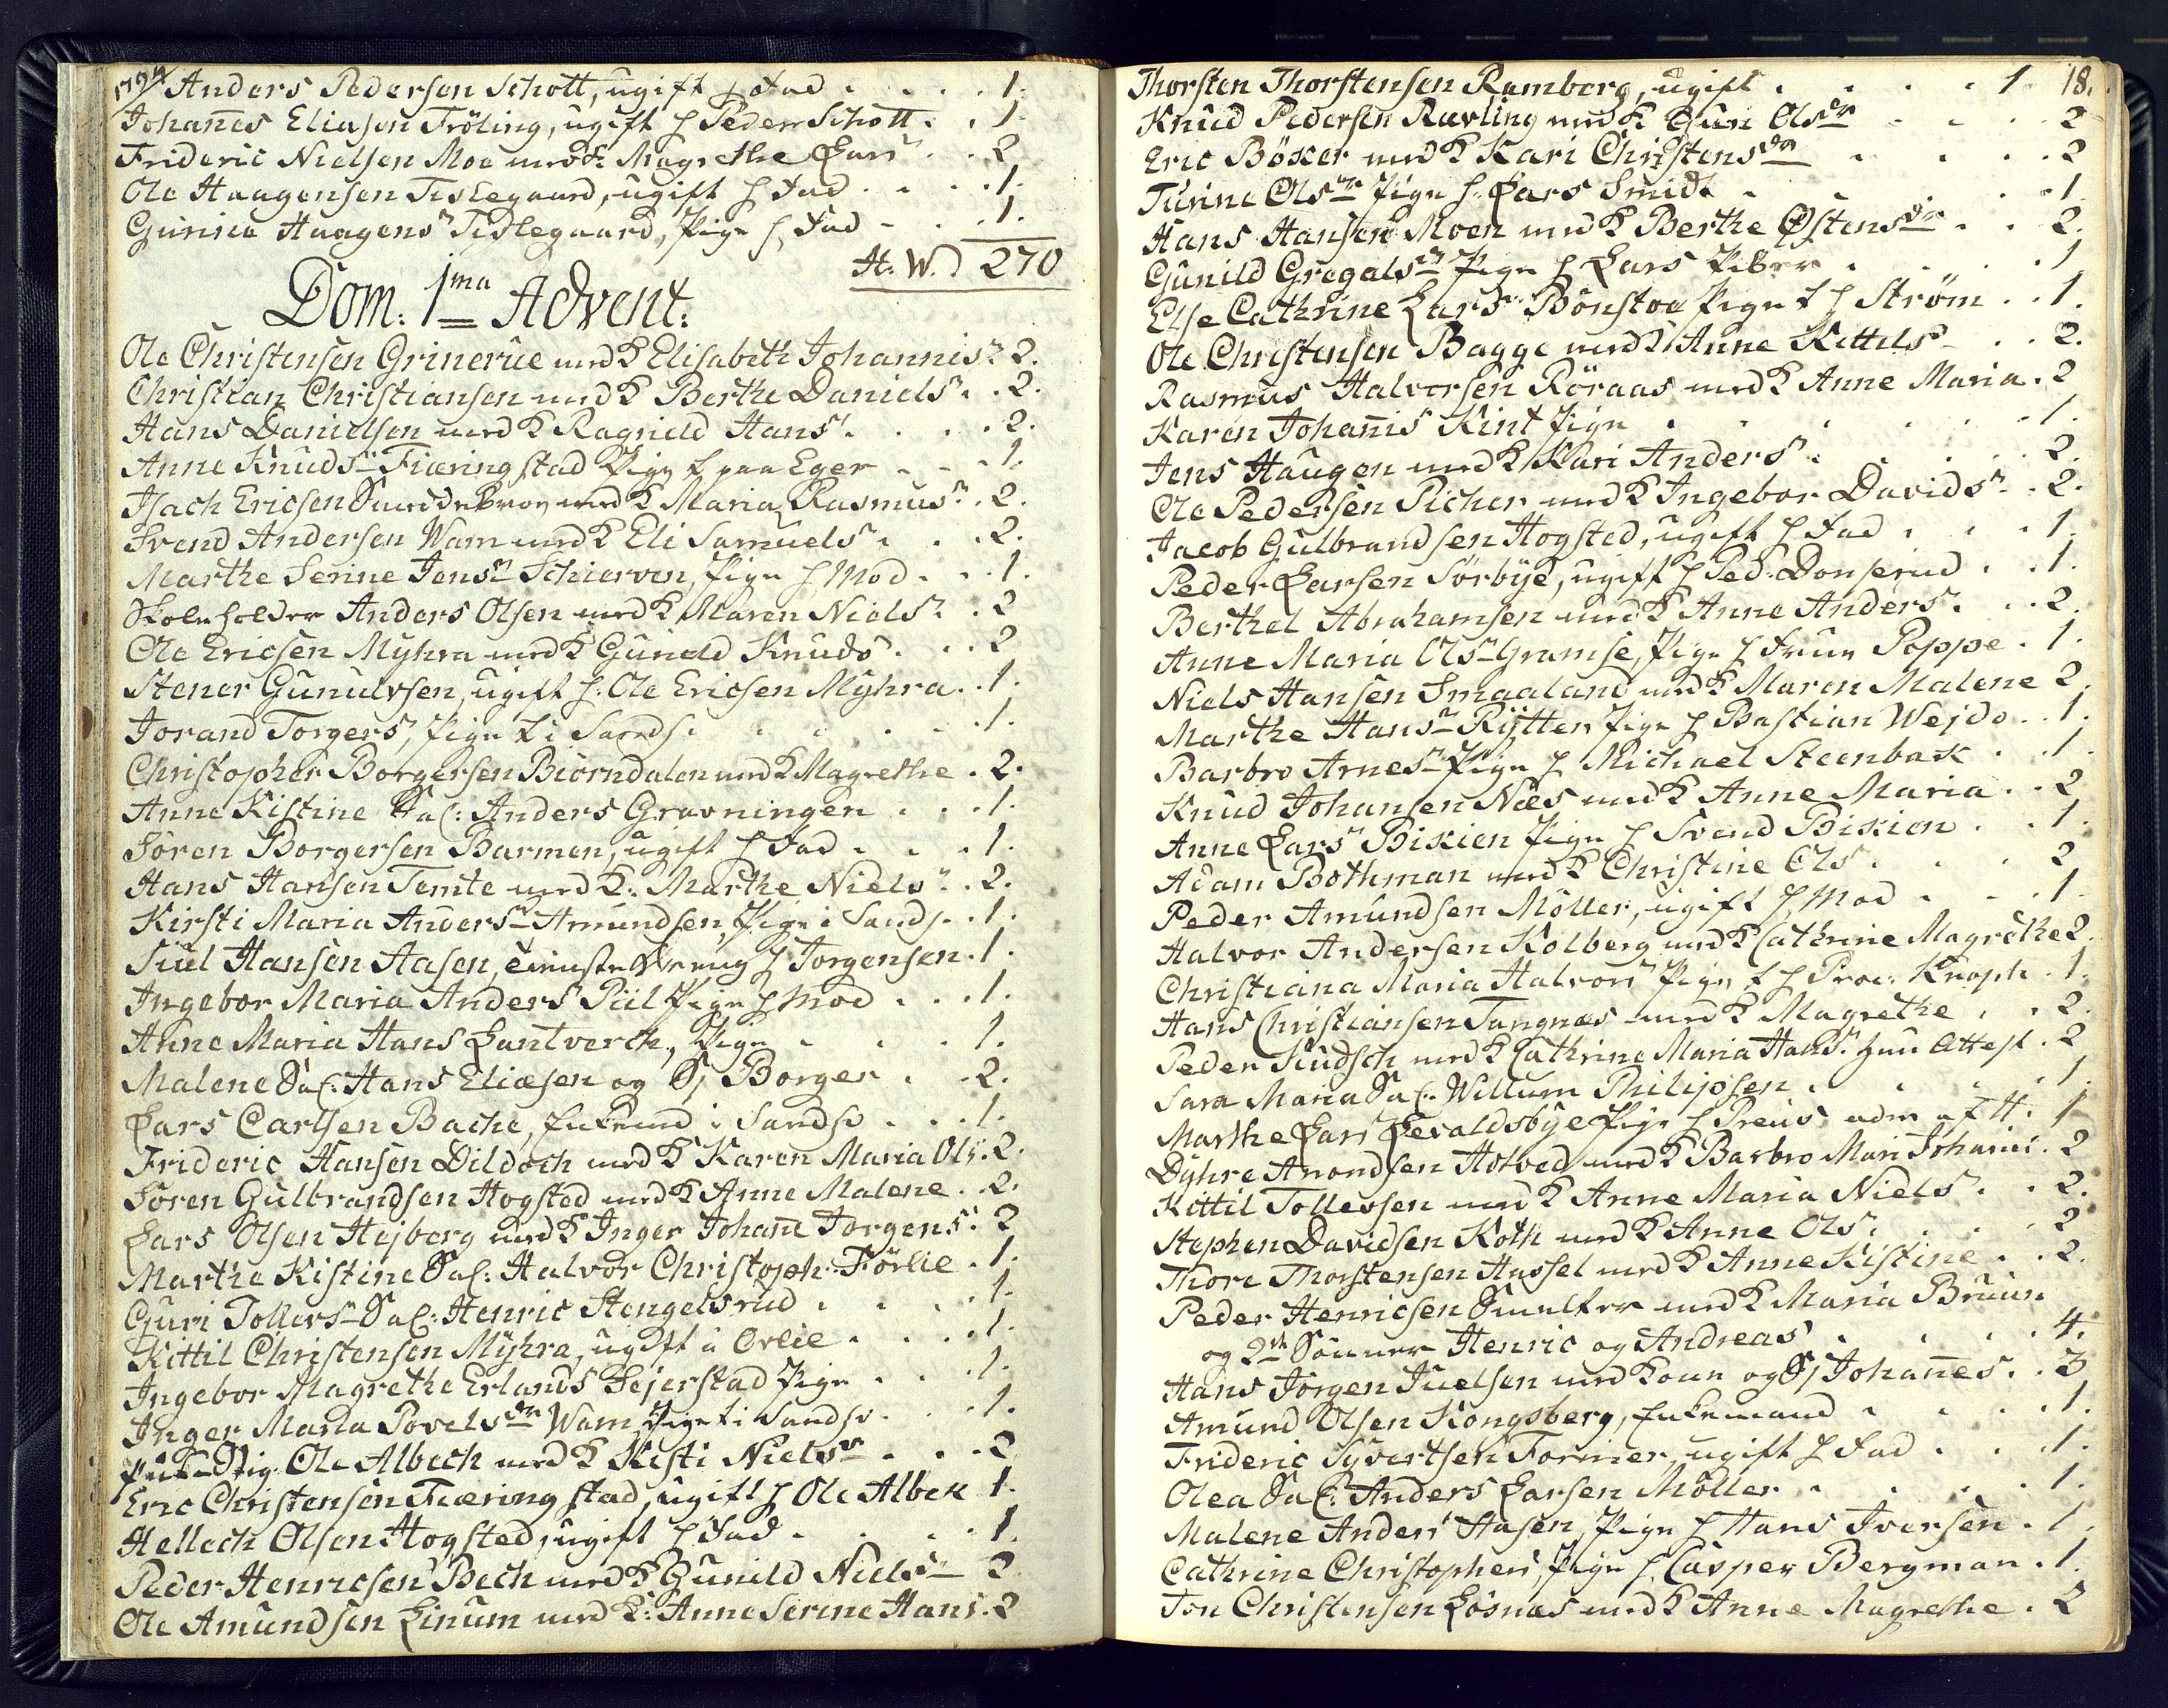 1774 Anders Pedersen Schott, ugift h Fad . . . . 1.
Johanes Eliasen Fröling, ugift h Peder Schott . . 1.
Frideric Nielsen Moe med K Magrethe Lars . . 2.
Ole Haagensen Tislegaard, ugift h Fad . . . . 1.
Gunild Haagens Tislegaard, Pige h Fad - . . 1.
H. W. 270
Dom: 1ma Advent:
Ole Christensen Grinerue med K Elisabeth Johannis 2.
Christian Christiansen med K Berthe Daniels . . 2.
Hans Danielsen med K Ragnild Hans . . . . 2.
Anne Knuds Fiæringstad Pige t paa Eger . . . 1.
Isach Ericsen med K Maria Rasmus . 2.
Svend Andersen Wam med K Eli Samuels . . . 2.
Marthe Serine Jens Schierven, Pige h Mod . . . 1.
Skoleholder Anders Olsen med K Maren Niels . . 2
Ole Ericsen Myhra med K Gunild Knuds . . . 2
Stener Gunulvsen, ugift h. Ole Ericsen Myhra . . 1.
Jorand Torgers, Pige t i Sands . . . . . 1.
Christopher Borgersen Biørndalen med K Magrethe . 2.
Anne Kistine Sal: Anders Gravningen . . . 1.
Søren Borgersen Barmen, ugift h Fad . . . 1.
Hans Hansen Temte med K: Marthe Niels . . 2.
Kirsti Maria Anders Amundsen, Pige i Sands . . 1.
Juel Hansen Aasen, h Jorgensen . 1.
Ingebor Maria Anders Piil Pige h Mod . . . 1.
Anne Maria Hans Lantverck, Pige . . . . 1.
Malene Sal: Hans Eliæsen og S Borger . . 2.
Lars Carlsen Bache, Enkemd i Sands . . . 1.
Frideric Hansen Dildoch med K Karen Maria Ols . 2.
Søren Gulbrandsen Hogsted med K Anne Malene . . 2.
Lars Olsen Hejberg med K Inger Johane Jorgens . 2
Marthe Kistine Sal: Halvor Christoph. Förlie . 1.
Guri Tollers Sal: Henric Stengelsrud . . . . 1.
Kittil Christensen Myhra, ugift i Ovlie . . . . 1.
Ingebor Magrethe Erlands Sejerstad Pige . . . 1.
Inger Maria Povels dr Wam, Pige t i Sands . . . 1.
Ole Albech med K Kisti Niels . . . 2
Eric Christensen Fiæringstad, ugift h Ole Albek 1.
Hellech Olsen Hogsted, ugift h Fad . . . . . 1.
Peder Henricsen Bech med K Gunild Niels 2
Ole Amundsen Linum med K: Anne Serine Hans . 2
18.
Thorsten Thorstensen Ramberg, ugift . . . . 1
Knud Pedersen Rævling med K Guri Ols dr . . . 2
Eric Böxer med K Kari Christens dr . . . . 2
Turine Ols Pige h. Lars Smidt . . . . . 1.
Hans Hansen Moen med K Berthe Østens dr . . 2.
Gunild Gregals Pige h Lars Piber . . . . 1
Else Cathrine Lars Bönstoe Pige t h Strøm . . 1.
Ole Christensen Bagge med K Anne Kittils . . . 2.
Rasmus Halvorsen Röraas med K Anne Maria . 2
Karen Johanis Kint Pige . . . . . . 1.
Jens Haugen med K Kari Anders . . . . . 2.
Ole Pedersen Picher med K Ingebor Davids . . 2.
Jacob Gulbrandsen Hogsted, ugift h Fad . . . 1.
Peder Larsen Sörbye, ugift h Ped: Donserud . . 1.
Berthel Abrahamsen med K Anne Anders . . . 2.
Anne Maria Ols Gramse, Pige h Frue Poppe . 1.
Niels Hansen Smaaland med K Maren Malene 2.
Marthe Hans Rytter Pige h Bastian Wejdo . . 1.
Barbro Arnes Pige h Michael Steenbak . . 1.
Knud Johansen Næs med K Anne Maria . . 2
Anne Lars Bikien Pige h Svend Bikien . . 1.
Adam Bothman med K Christine Ols . . . 2
Peder Amundsen Möller, ugift h Mod . . . 1.
Halvor Andersen Kolberg med K Cathrine Magrethe 2.
Christiana Maria Halvors Pige t h Proc: Knoph . 1.
Hans Christiansen Tangnæs med K Magrethe . . 2.
Peder med K Cathrine Maria Hans. Attest . 2
Sara Maria Sal. Willum Philipsen . . . . 1.
Marthe Lars Levaldsbye Pige h Preus adm af H. 1
Dyhre Amondsen Hotved med K Barbro Mari Johanis . 2
Kittil Tollevsen med K Anne Maria Niels . . 2.
Stephen Davidsen Koth med K Anne Ols . . . 2
Thore Thorstensen Hassel med K Anne Kistine . . 2.
Peder Henricsen Smelter med K Maria Bruun
og 2de Sønner Henric og Andreas . . . . 4.
Hans Jörgen Juelsen med Kone og S Johanes . . 3
Amund Olsen Kongsberg, Enkemand . . . . 1.
Frideric Syvertsen Former, ugift h Fad . . . 1.
Olea Sal: Anders Larsen Möller . . . . . 1.
Malene Anders Aasen, Pige h Hans Iversen . 1.
Cathrine Christophers, Pige h. Casper Bergman . 1.
Jon Christensen Løsnæs med K Anne Magrethe . 2